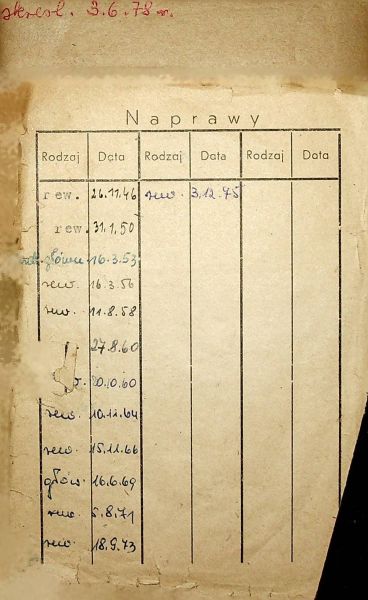 skreśl. 3.6.78 r.
Naprawy
Rodzaj Data Rodzaj Data Rodzaj Data
rew. 26.11.46 rew. 3.12.75
rew. 31.1.50
główn. 16.3.53
rew. 16.3.56
rew. 11.8.58
27.8.60
20.10.60
rew. 10.12.64
rew. 15.11.66
głów. 16.6.69
rew. 5.8.71
rew. 18.9.73